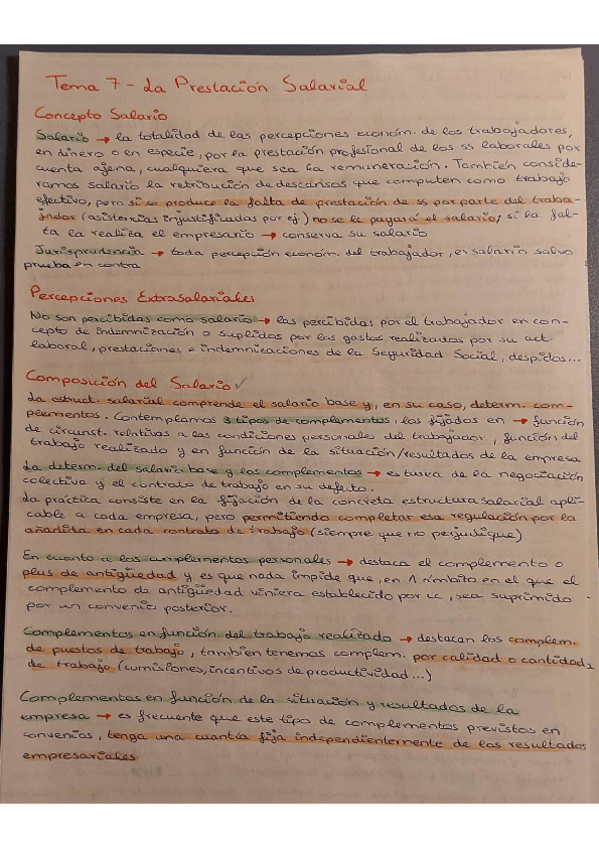 Tema 7 - La Prestación Salarial
Concepto Salario
Salario → la totalidad de las percepciones económ. de los trabajadores,
en dinero o en especie, por la prestación profesional de los ss laborales por
cuenta ajena, cualquiera que sea la remuneración. También conside-
ramos salario la retribución de descansos que computen como trabajo
efectivo, pero si se produce la falta de prestación de ss por parte del traba-
jador (asistencias injustificadas por ej.) no se le pagará el salario, si la fal-
ta la realiza el empresario → conserva su salario
Jurisprudencia → toda percepción económ. del trabajador, es salario salvo
prueba en contra
Percepciones Extrasalariales
No son percibidas como salario → las percibidas por el trabajador en con-
cepto de indemnización o suplidos por los gastos realizados por su act.
laboral, prestaciones e indemnizaciones de la Seguridad Social, despidos...
Composición del Salario ✓
La estruct. salarial comprende el salario base y, en su caso, determ. com-
plementos. Contemplamos 3 tipos de complementos, los fijados en → función
de circunst. relativas a las condiciones personales del trabajador, función del
trabajo realizado y en función de la situación/resultados de la empresa
La determ. del salario base y los complementos → es tarea de la negociación
colectiva y el contrato de trabajo en su defecto.
La práctica consiste en la fijación de la concreta estructura salarial apli-
cable a cada empresa, pero permitiendo completar esa regulación por la
añadida en cada contrato de trabajo (siempre que no perjudique)
En cuanto a los complementos personales → destaca el complemento o
plus de antigüedad y es que nada impide que, en 1 ámbito en el que el
complemento de antigüedad viniera establecido por cc, sea suprimido
por un convenio posterior.
Complementos en función del trabajo realizado → destacan los complem.
de puestos de trabajo, tambien tenemos complem. por calidad o cantidad
de trabajo (comisiones, incentivos de productividad...)
Complementos en función de la situación y resultados de la
empresa → es frecuente que este tipo de complementos previstos en
convenios, tenga una cuantía fija independientemente de los resultados
empresariales